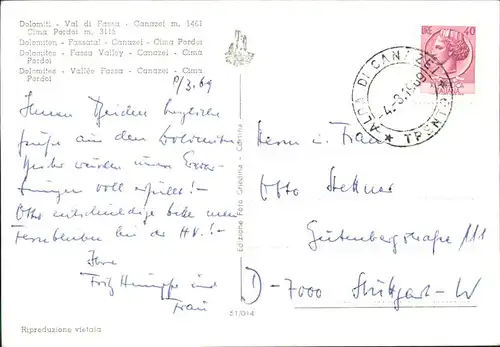 Dolomiti - Val di Fassa - Canazei m. 1461
Cima Pordoi m. 3115
Dolomiten - Fassatal - Canazei - Cima Pordoi
Dolomites - Fassa Valley - Canazei - Cima
Pordoi
Dolomites - Vallée Fassa - Canazei - Cima
Pordoi
/3.69
Ihnen Beiden herzliche
Grüße aus den Dolomiten
Wetter unsere Erwar-
tungen voll erfüllt! -
entschuldige bitte unser
Fernbleiben bei der HV.! -
Ihre
Fritz und
Frau
Edizione Foto Ghedina - Cortina
51/014
LIRE 40
ALBA DI CANAZEI
-4.-3.1969
* TRENTO *
Herrn u. Frau
Otto Stettner
Gutenbergstraße 111
D - 7000 Stuttgart - W
Riproduzione vietata